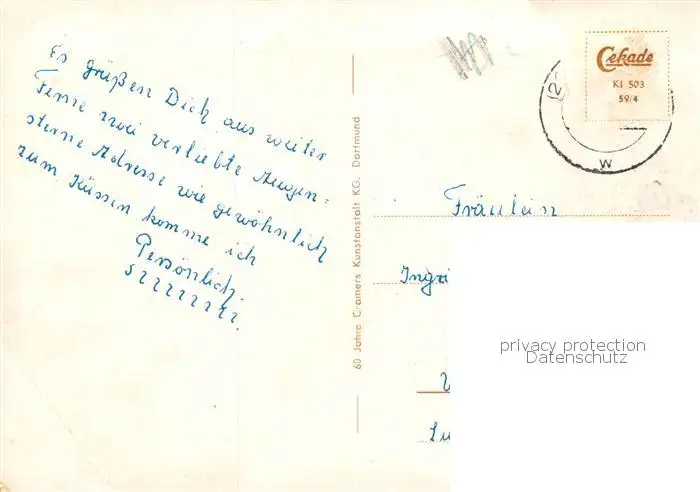 Es grüßen Dich aus weiter
Ferne zwei verliebte Augen=
sterne Adresse wie gewöhnlich
zum Küssen komme ich
Persönlich.
60 Jahre Cramers Kunstanstalt KG. Dortmund
Cekade
KI 503
59/4
(2
w
Fräulein
Ingri
privacy protection
Datenschutz